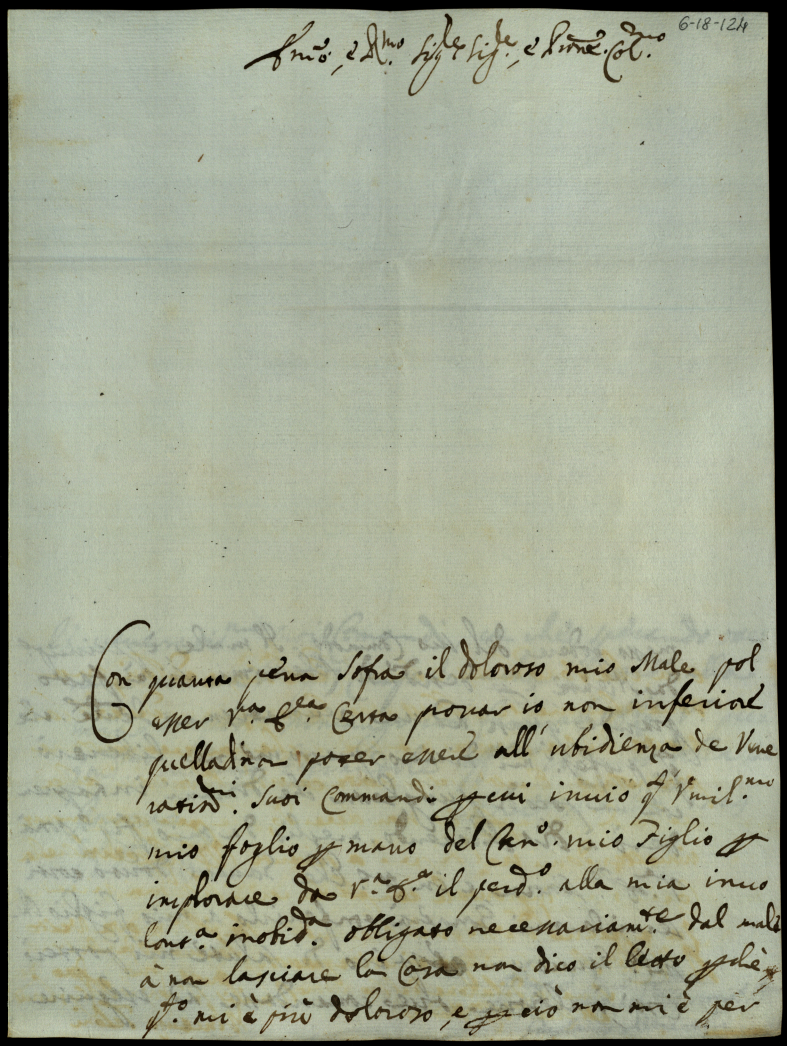 6-18-124
Emõ, e Rmo. Sigre Sigre, e Prone. Colmo.
Con quanta pena Sofra il doloroso mio Male pol
esser Va. Eza. Certa provar io, non inferiore
quella di non poter essere all' ubidienza de Vene
ratismi. Suoi Commandi p cui invio qto Vmil.mo
mio foglio p mano del Cano. mio Figlio p
implorare da Va. Ea. il perdo. alla mia invo
lonta. inobida. obligato necessariamte. dal male
à non lasciare la Casa non dico il letto pchè
qto. mi è più doloroso, e p ciò non mi è per